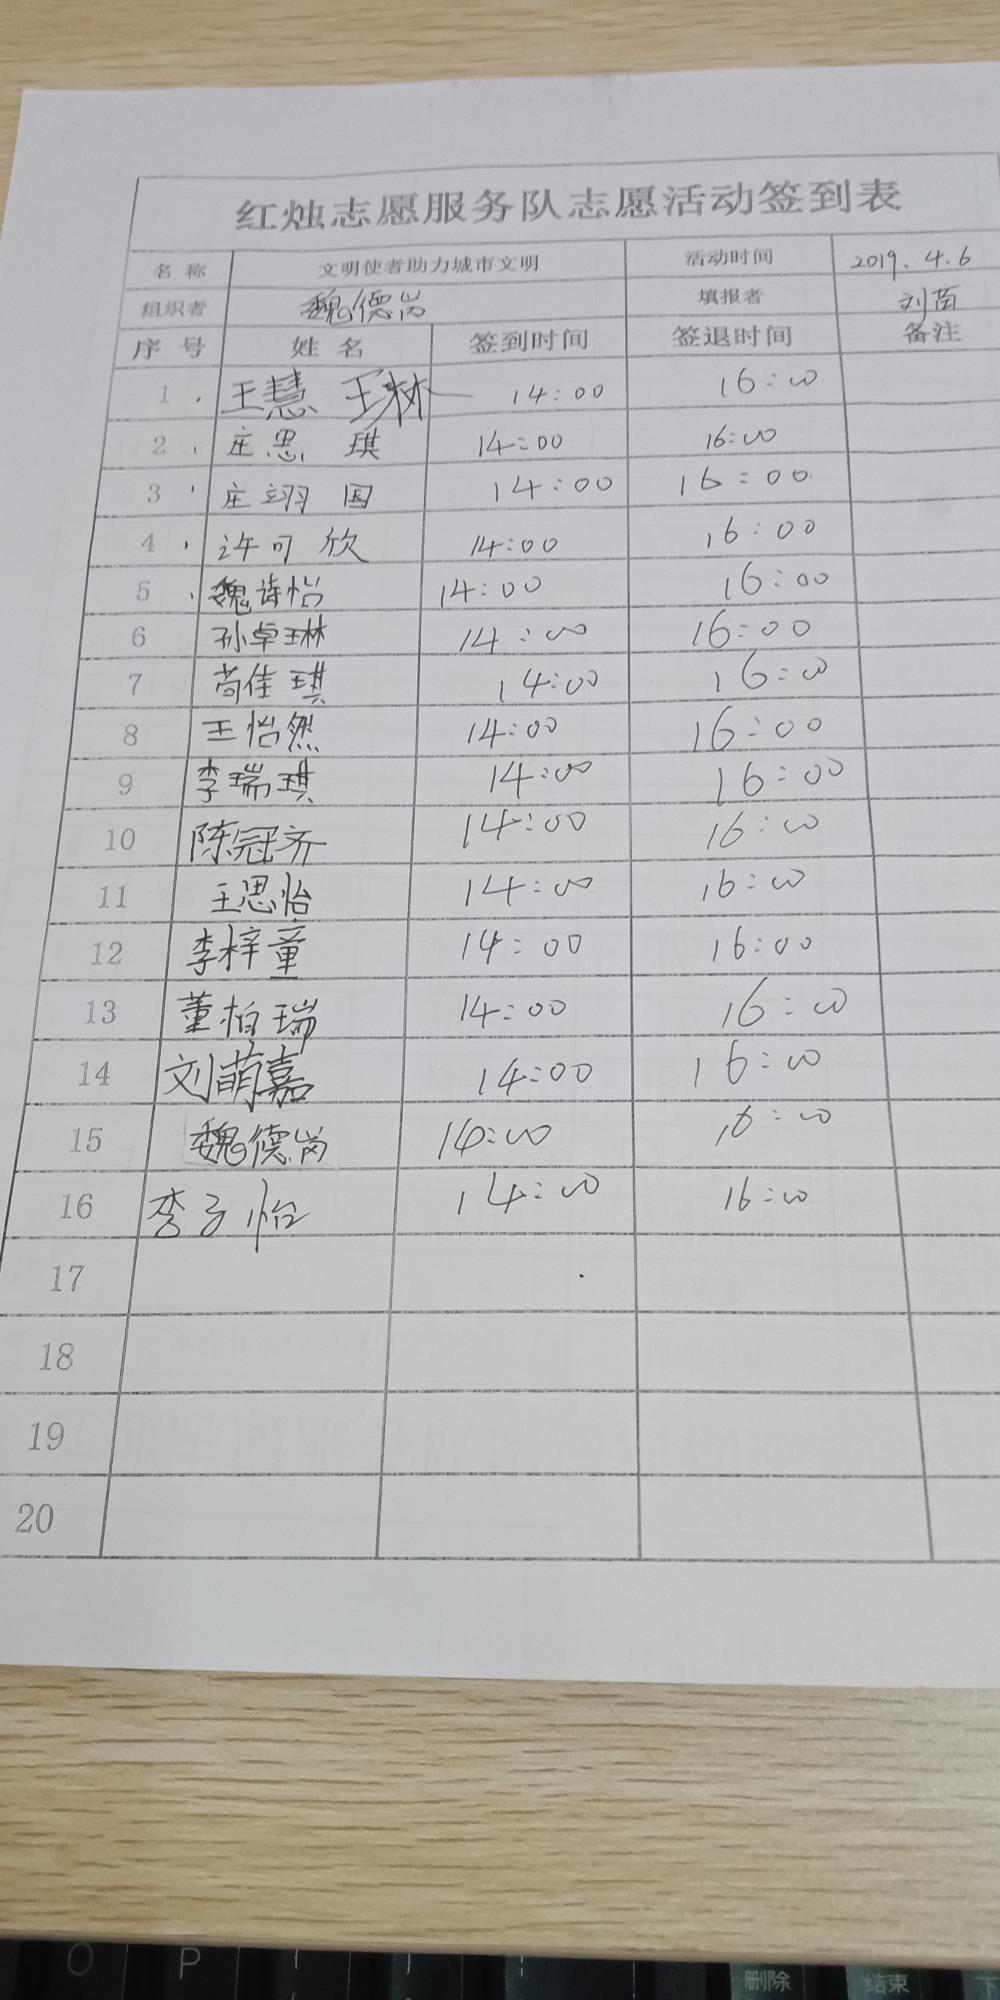 红烛志愿服务队志愿活动签到表
名称 文明使者助力城市文明 活动时间 2019.4.6
组织者 魏德岗 填报者 刘苗
序号 姓名 签到时间 签退时间 备注
1 王慧 王琳 14:00 16:00
2 庄思琪 14:00 16:00
3 庄翊国 14:00 16:00
4 许可欣 14:00 16:00
5 魏诗怡 14:00 16:00
6 孙卓琳 14:00 16:00
7 苟佳琪 14:00 16:00
8 王怡然 14:00 16:00
9 李瑞琪 14:00 16:00
10 陈冠齐 14:00 16:00
11 王思怡 14:00 16:00
12 李梓童 14:00 16:00
13 董柏瑞 14:00 16:00
14 刘萌嘉 14:00 16:00
15 魏德岗 14:00 16:00
16 李子怡 14:00 16:00
17
18
19
20
O P 删除 结束